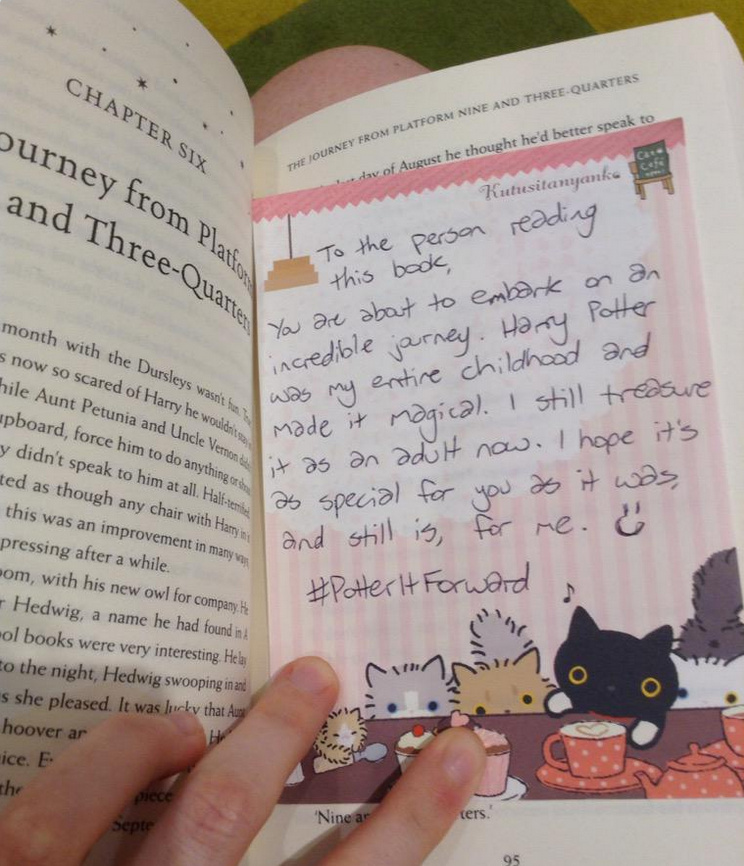 CHAPTER SIX
ourney from Platform
and Three-Quarters
month with the Dursleys wasn't fun.
s now so scared of Harry he wouldn't
hile Aunt Petunia and Uncle Vernon
upboard, force him to do anything or
y didn't speak to him at all. Half-terrified
ted as though any chair with Harry in
this was an improvement in many ways
pressing after a while.
oom, with his new owl for company. He
r Hedwig, a name he had found in A
ool books were very interesting. He lay
to the night, Hedwig swooping in and
s she pleased. It was lucky that Aunt
hoover
ice.
piece
Septe
THE JOURNEY FROM PLATFORM NINE AND THREE-QUARTERS
day of August he thought he'd better speak to
Kutusitanyanko
Cats
Cafe
To the person reading
this book,
You are about to embark on an
incredible journey. Harry Potter
was my entire childhood and
made it magical. I still treasure
it as an adult now. I hope it's
as special for you as it was,
and still is, for me.
#PotterItForward
'Nine ters.'
95